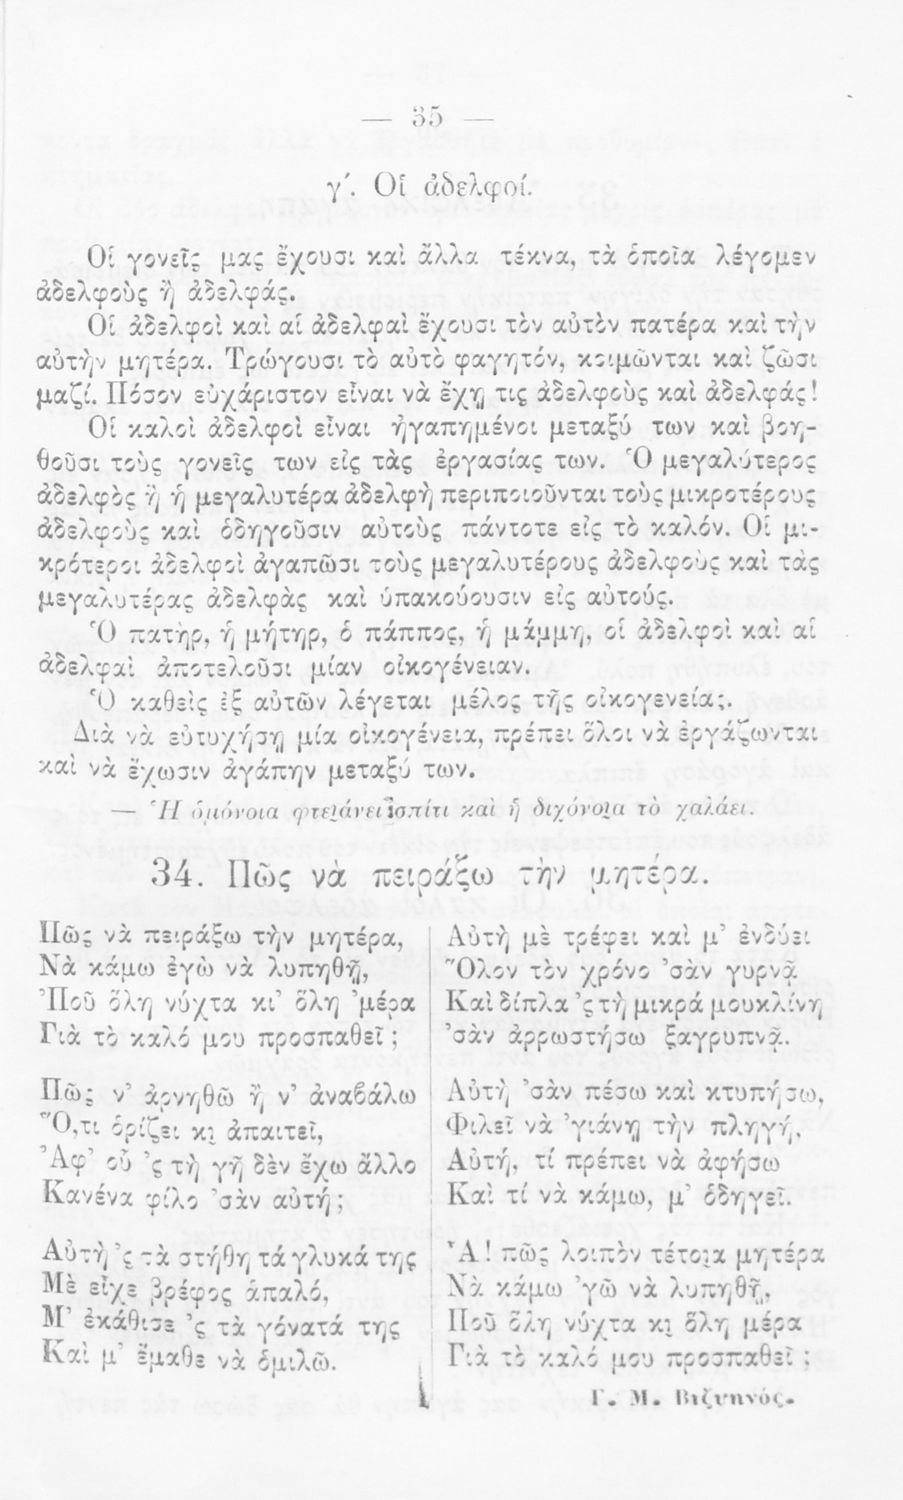 — 35 —
γ΄. Οἱ ἀδελφοί.
Οἱ γονεῖς μας ἔχουσι καὶ ἄλλα τέκνα, τὰ ὁποῖα λέγομεν
ἀδελφοὺς ἢ ἀδελφάς.
Οἱ ἀδελφοὶ καὶ αἱ ἀδελφαὶ ἔχουσι τὸν αὐτὸν πατέρα καὶ τὴν
αὐτὴν μητέρα. Τρώγουσι τὸ αὐτὸ φαγητόν, κοιμῶνται καὶ ζῶσι
μαζί. Πόσον εὐχάριστον εἶναι νὰ ἔχῃ τις ἀδελφοὺς καὶ ἀδελφάς!
Οἱ καλοὶ ἀδελφοὶ εἶναι ἠγαπημένοι μεταξύ των καὶ βοη-
θοῦσι τοὺς γονεῖς των εἰς τὰς ἐργασίας των. Ὁ μεγαλύτερος
ἀδελφὸς ἢ ἡ μεγαλυτέρα ἀδελφὴ περιποιοῦνται τοὺς μικροτέρους
ἀδελφοὺς καὶ ὁδηγοῦσιν αὐτοὺς πάντοτε εἰς τὸ καλόν. Οἱ μι-
κρότεροι ἀδελφοὶ ἀγαπῶσι τοὺς μεγαλυτέρους ἀδελφοὺς καὶ τὰς
μεγαλυτέρας ἀδελφὰς καὶ ὑπακούουσιν εἰς αὐτούς.
Ὁ πατήρ, ἡ μήτηρ, ὁ πάππος, ἡ μάμμη, οἱ ἀδελφοὶ καὶ αἱ
ἀδελφαὶ ἀποτελοῦσι μίαν οἰκογένειαν.
Ὁ καθεὶς ἐξ αὐτῶν λέγεται μέλος τῆς οἰκογενείας.
Διὰ νὰ εὐτυχήσῃ μία οἰκογένεια, πρέπει ὅλοι νὰ ἐργάζωνται
καὶ νὰ ἔχωσιν ἀγάπην μεταξύ των.
— Ἡ ὁμόνοια φτειάνει σπίτι καὶ ἡ διχόνοια τὸ χαλάει.
34. Πῶς νὰ πειράξω τὴν μητέρα.
Πῶς νὰ πειράξω τὴν μητέρα,
Νὰ κάμω ἐγὼ νὰ λυπηθῇ,
Ποῦ ὅλη νύχτα κι' ὅλη 'μέρα
Γιὰ τὸ καλό μου προσπαθεῖ;
Πῶς ν' ἀρνηθῶ ἢ ν' ἀναβάλω
Ὅ,τι ὁρίζει κι ἀπαιτεῖ,
Ἀφ' οὗ 'ς τὴ γῆ δὲν ἔχω ἄλλο
Κανένα φίλο 'σὰν αὐτή;
Αὐτὴ 'ς τὰ στήθη τά γλυκά της
Μὲ εἶχε βρέφος ἁπαλό,
Μ' ἐκάθισε 'ς τὰ γόνατά της
Καὶ μ' ἔμαθε νὰ ὁμιλῶ.
Αὐτὴ μὲ τρέφει καὶ μ' ἐνδύει
Ὅλον τὸν χρόνο 'σὰν γυρνᾷ
Καὶ δίπλα 'ς τὴ μικρά μου κλίνη
'σὰν ἀρρωστήσω ξαγρυπνᾷ.
Αὐτὴ 'σὰν πέσω καὶ κτυπήσω,
Φιλεῖ νὰ 'γιάνῃ τὴν πληγή,
Αὐτή, τί πρέπει νὰ ἀφήσω
Καὶ τί νὰ κάμω, μ' ὁδηγεῖ.
Ἄ! πῶς λοιπὸν τέτοια μητέρα
Νὰ κάμω 'γῶ νὰ λυπηθῇ,
Ποῦ ὅλη νύχτα κι ὅλη μέρα
Γιὰ τὸ καλό μου προσπαθεῖ;
Γ. Μ. Βιζυηνός.